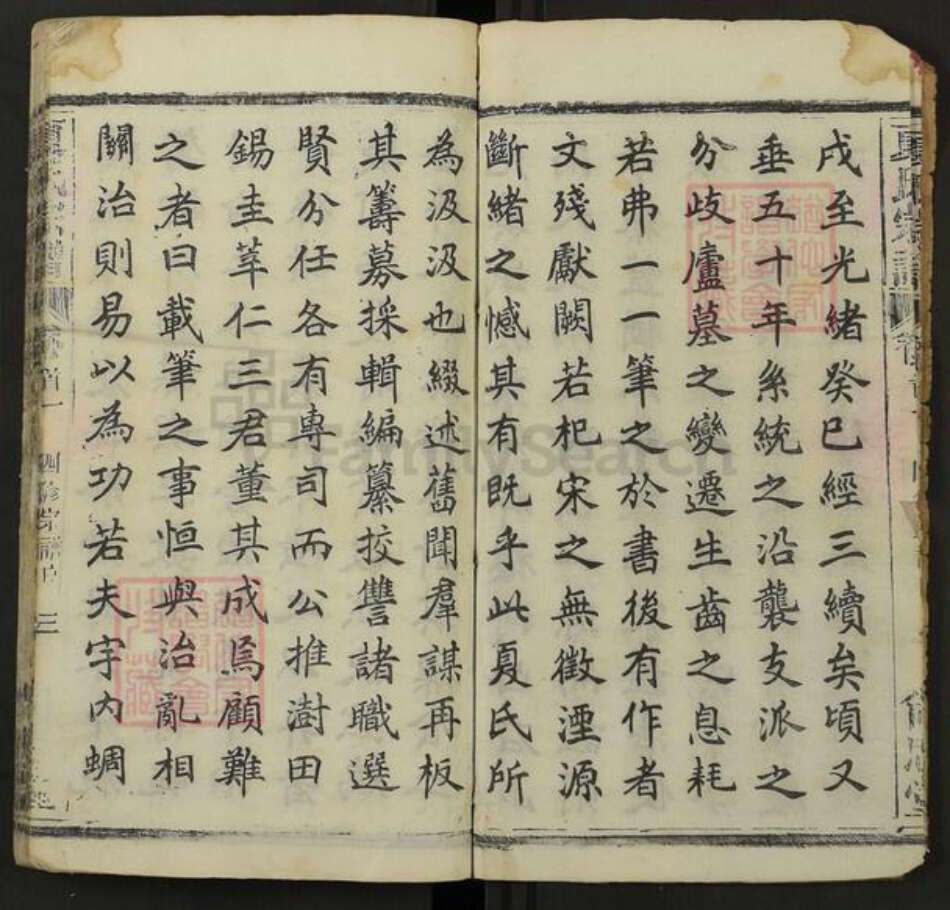 夏氏宗譜
戌至光緒癸巳經三續矣頃又
垂五十年系統之沿襲支派之
分歧廬墓之變遷生齒之息耗
若弗一一筆之於書後有作者
文殘獻闕若杞宋之無徵湮源
斷緒之憾其有既乎此夏氏所
為汲汲也綴述舊聞羣謀再板
其籌募採輯編纂挍讐諸職選
賢分任各有專司而公推澍田
錫圭莘仁三君董其成焉顧難
之者曰載筆之事恒與治亂相
關治則易以為功若夫宇内蜩
卷首一 四修宗譜 三
FamilySearch